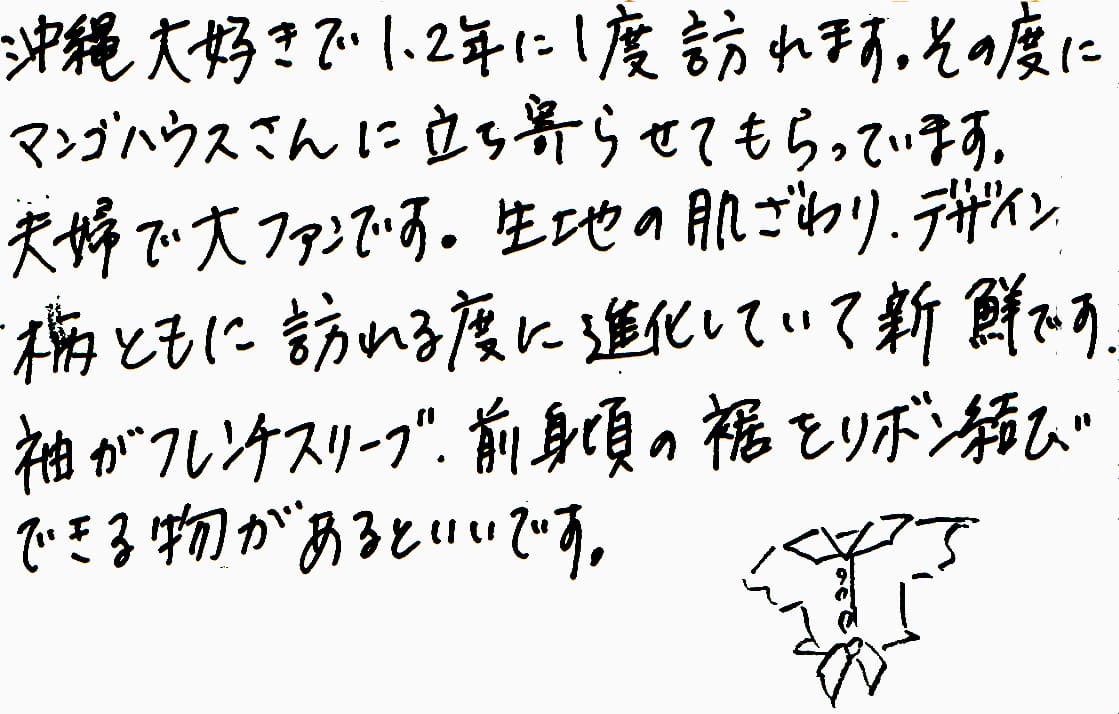 沖縄大好きで1、2年に1度訪れます。その度に
マンゴハウスさんに立ち寄らせてもらっています。
夫婦で大ファンです。生地の肌ざわり、デザイン
柄ともに訪れる度に進化していて新鮮です。
袖がフレンチスリーブ、前身頃の裾をリボン結び
できる物があるといいです。